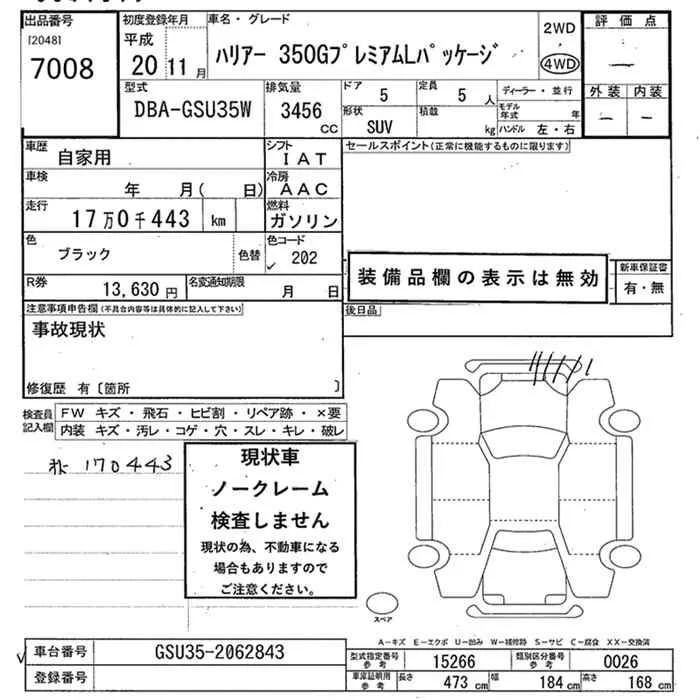 出品番号
[2048]
7008
初度登録年月
平成
20 11 月
車名・グレード
ハリアー 350GプレミアムLパッケージ
2WD
4WD
評価点
―
外装 内装
― ―
型式
DBA-GSU35W
排気量
3456
cc
ドア
5
定員
5 人
形状
SUV
積載
kg
ディーラー・並行
モデル年式 年
ハンドル 左・右
車歴
自家用
シフト
IAT
セールスポイント(正常に機能するものに限ります)
車検
年 月( 日)
冷房
AAC
走行
17万0千443 km
燃料
ガソリン
色
ブラック
色替
色コード
202
R券
13,630 円
名変通知期限
月 日
装備品欄の表示は無効
新車保証書
有・無
注意事項申告欄(不具合内容等は具体的に記入して下さい)
事故現状
修復歴 有〔箇所 〕
後日品
検査員記入欄
FW キズ・飛石・ヒビ割・リペア跡・×要
内装 キズ・汚レ・コゲ・穴・スレ・キレ・破レ
170443
現状車
ノークレーム
検査しません
現状の為、不動車になる
場合もありますので
ご注意ください。
スペア
A-キズ E-エクボ U-凹み W-補修跡 S-サビ C-腐食 XX-交換済
車台番号
GSU35-2062843
登録番号
型式指定番号
参考
15266
類別区分番号
参考
0026
車庫証明用
参考
長さ
473 cm
幅
184 cm
高さ
168 cm